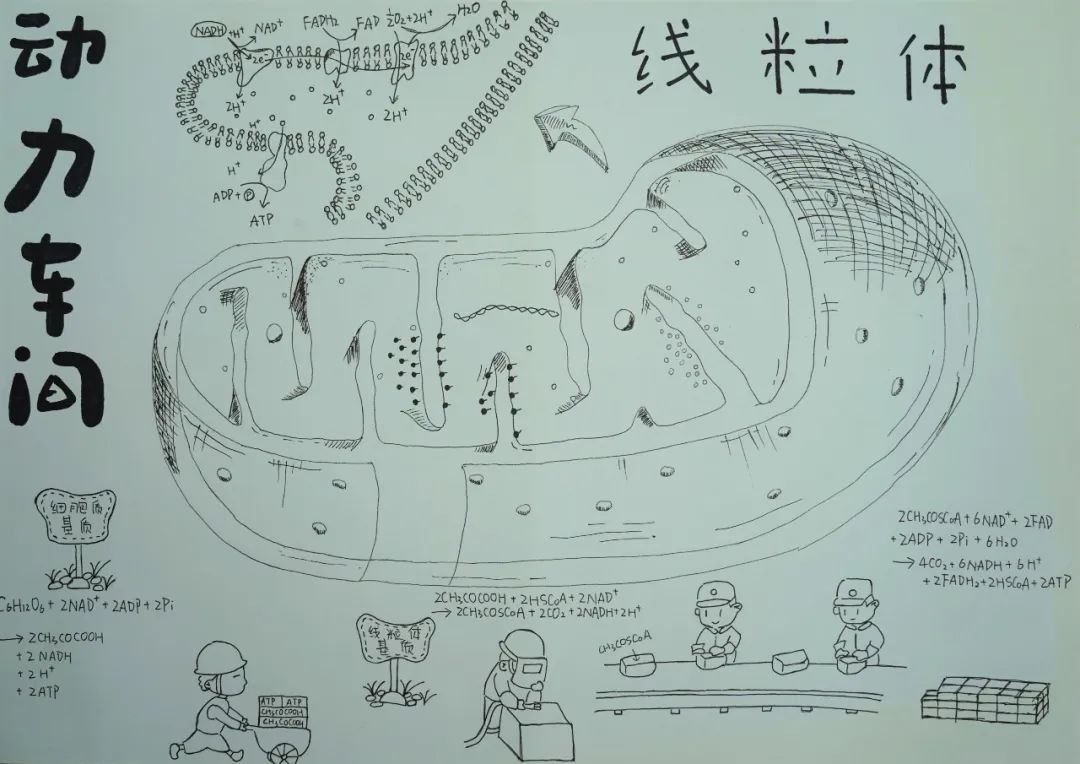 动力车间
线粒体
NADH +H⁺
NAD⁺
FADH₂
FAD
½O₂+2H⁺
H₂O
2e⁻
2e⁻
2H⁺
2H⁺
2H⁺
H⁺
H⁺
ADP+Ⓟ
ATP
细胞质
基质
C₆H₁₂O₆ + 2NAD⁺ + 2ADP + 2Pi
→ 2CH₃COCOOH
+ 2NADH
+ 2H⁺
+ 2ATP
ATP ATP
CH₃COCOOH
CH₃COCOOH
线粒体
基质
2CH₃COCOOH + 2HSCoA + 2NAD⁺
→ 2CH₃COSCoA + 2CO₂ + 2NADH+2H⁺
CH₃COSCoA
2CH₃COSCoA + 6NAD⁺ + 2FAD
+2ADP + 2Pi + 6H₂O
→ 4CO₂ + 6NADH + 6H⁺
+ 2FADH₂+2HSCoA+2ATP